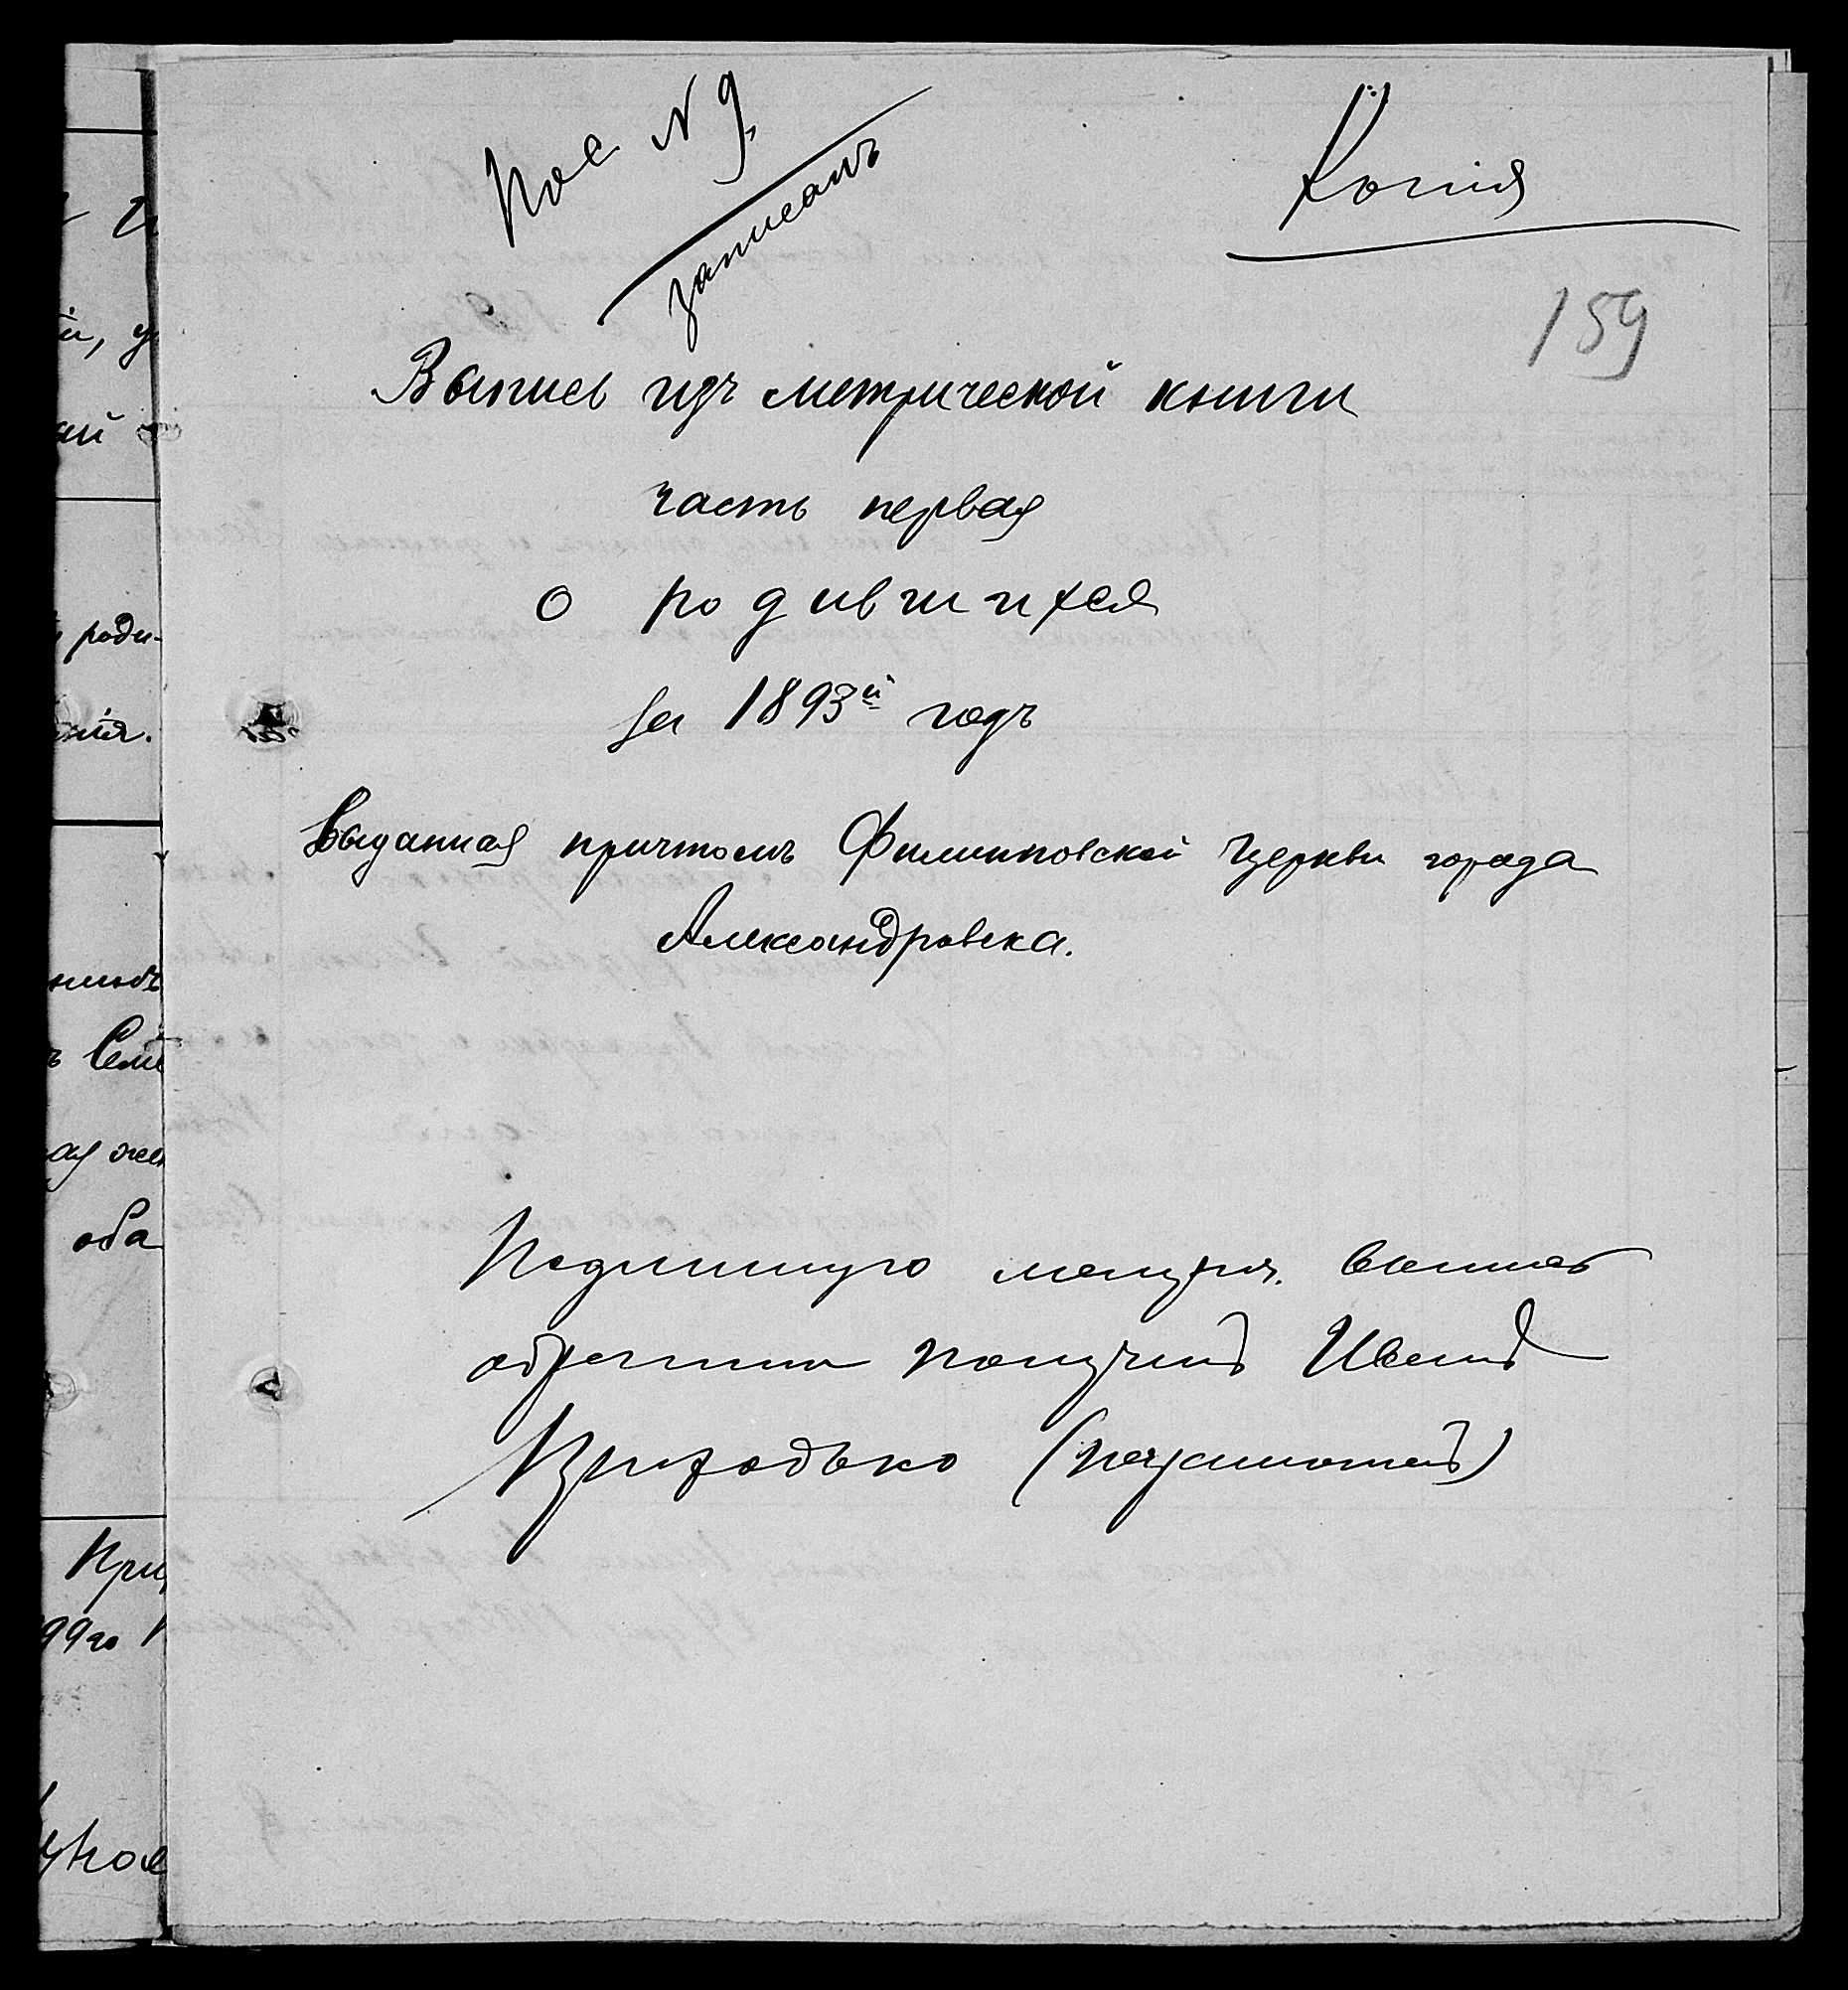 Пос. N 9.
записанъ
Копія
159
Выпись изъ метрической книги
часть первая
о родившихся
за 1893й годъ
Выданная причтомъ Филипповской Церкви города
Александровска.
Подлинную метрич. выпись
обратно получилъ Иванъ
Приходько (неграмотный)
й, у
ый
роди-
нія.
ая же
оба
При
99го